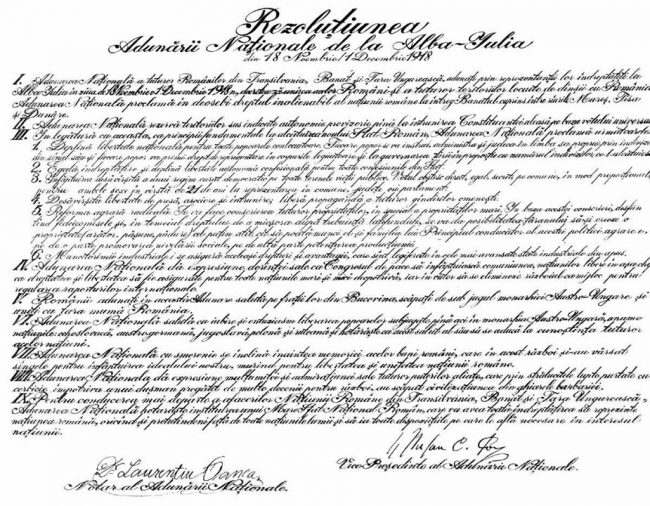 Rezoluțiunea
Adunării Naționale de la Alba-Iulia
din 18 Noembrie/1 Decembrie 1918
I. Adunarea Națională a tuturor Românilor din Transilvania, Banat și Țara Ungurească, adunați prin reprezentanții lor îndreptățiți la
Alba Iulia în ziua de 18 Noembrie/1 Decembrie 1918, decretează unirea acelor Români și a tuturor teritoriilor locuite de dînșii cu România.
Adunarea Națională proclamă în deosebi dreptul inalienabil al națiunii române la întreg Banatul cuprins între rîurile Mureș, Tisa
și Dunăre.
II. Adunarea Națională rezervă teritoriilor sus indicate autonomie provizorie până la întrunirea Constituantei aleasă pe baza votului universal
III. În legătură cu aceasta, ca principii fundamentale la alcătuirea noului Stat Român, Adunarea Națională proclamă următoarele:
1. Deplină libertate națională pentru toate popoarele conlocuitoare. Fiecare popor se va instrui, administra și judeca în limba sa proprie prin indivizi
din sînul său și fiecare popor va primi drept de reprezentare în corpurile legiuitoare și la guvernarea țării în proporție cu numărul indivizilor ce-l alcătuiesc
2. Egală îndreptățire și deplină libertate autonomă confesională pentru toate confesiunile din Stat.
3. Înfăptuirea desăvîrșită a unui regim curat democratic pe toate terenele vieții publice. Votul obștesc, direct, egal, secret, pe comune, în mod proporțional,
pentru ambele sexe în vîrstă de 21 de ani la reprezentarea în comune, județe ori parlament.
4. Desăvîrșită libertate de presă, asociere și întrunire; liberă propagandă a tuturor gîndurilor omenești.
5. Reforma agrară radicală. Se va face conscrierea tuturor proprietăților, în special a proprietăților mari. În baza acestei conscrieri, desființând
fideicomisele și în temeiul dreptului de a micșora după trebuință latifundiile, se va da posibilitatea țăranului să-și creeze o
proprietate (arător, pășune, pădure) cel puțin atît cît să poată munci el și familia lui. Principiul conducător al acestei politici agrare e
pe de o parte promovarea nivelării sociale, pe de altă parte potențarea producțiunii.
6. Muncitorimii industriale i se asigură aceleași drepturi și avantagii, cari sînt legiferate în cele mai avansate state industriale din apus.
IV. Adunarea Națională dă expresiune dorinței sale, ca Congresul de pace să înfăptuiască comuniunea națiunilor libere în așa chip,
ca dreptatea și libertatea să fie asigurate pentru toate națiunile mari și mici deopotrivă, iar în viitor să se elimineze războiul ca mijloc pentru
regularea raporturilor internaționale.
V. Românii adunați în această Adunare salută pe frații lor din Bucovina, scăpați de sub jugul monarhiei Austro-Ungare și
uniți cu țara mumă România.
VI. Adunarea Națională salută cu iubire și entuziasm liberarea popoarelor subjugate pînă aci în monarhia Austro-Ungară, anume
națiunile: cehoslovacă, austro-germană, jugoslavă, polonă și ruteană și hotărăște ca acest salut al său să se aducă la cunoștința tuturor
acelor națiuni.
VII. Adunarea Națională cu smerenie se închină înaintea memoriei acelor bravi români, cari în acest război și-au vărsat
sîngele pentru înfăptuirea idealului nostru, murind pentru libertatea și unitatea națiunii române.
VIII. Adunarea Națională dă expresiune mulțumitei și admirațiunei sale tuturor Puterilor Aliate, cari prin strălucitele lupte purtate cu
cerbicie împotriva unui dușman pregătit de multe decenii pentru război, au scăpat civilizațiunea din ghiarele barbariei.
IX. Pentru conducerea mai departe a afacerilor Națiunii Române din Transilvania, Banat și Țara Ungurească,
Adunarea Națională hotărăște instituirea unui Mare Sfat Național Român, care va avea toată îndreptățirea să reprezinte
națiunea română, oricînd și pretutindeni față de toate națiunile lumii și să ia toate dispozițiile pe care le află necesare în interesul
națiunii.
Dr Laurențiu Oanea
Notar al Adunării Naționale.
Ștefan C. Pop
Vice Președinte al Adunării Naționale.